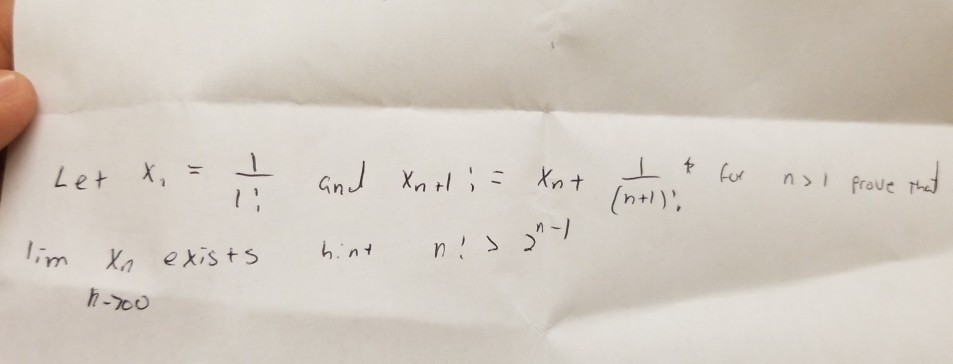 Let x₁ = 1/1! and xn+1 := xn + 1/(n+1)! * for n>1 prove that
lim n->∞ xn exists hint n! > 2^n-1